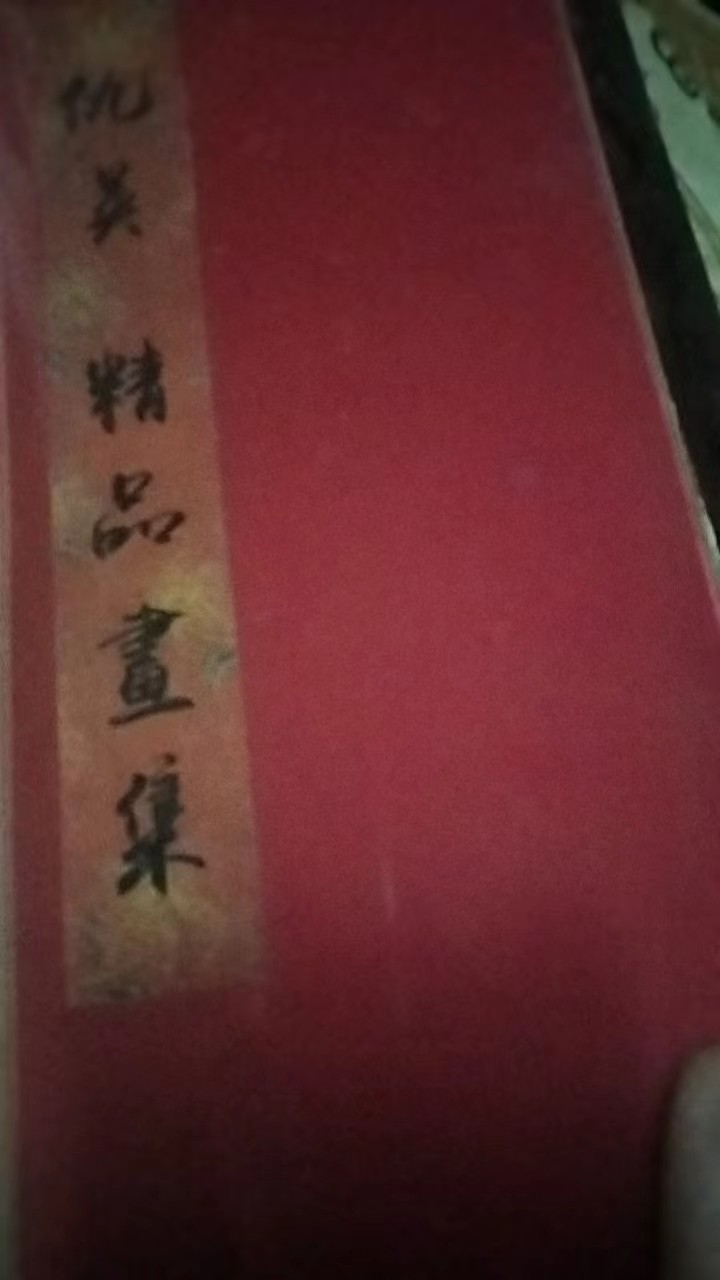 仇英 精品畫集